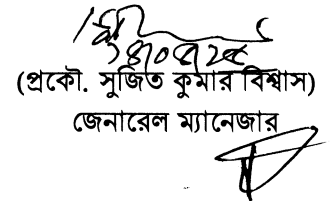 (প্রকৌ. সুজিত কুমার বিশ্বাস)
জেনারেল ম্যানেজার